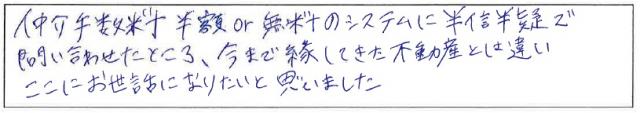 仲介手数料 半額 or 無料のシステムに半信半疑で
問い合わせたところ、今まで縁してきた不動産とは違い
ここにお世話になりたいと思いました